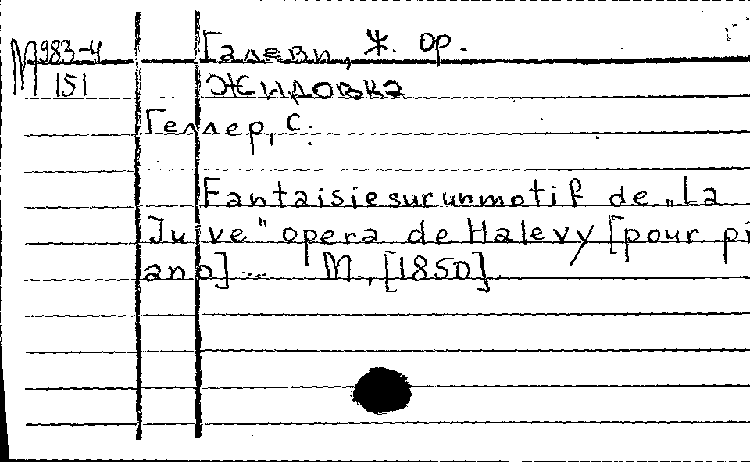 М 983-4 Галеви, Ж. ор.
151 Жидовка
Геллер, С.
Fantaisie sur un motif de „La
Juive" opera de Halevy [pour pi
ano] ... М., [1850]